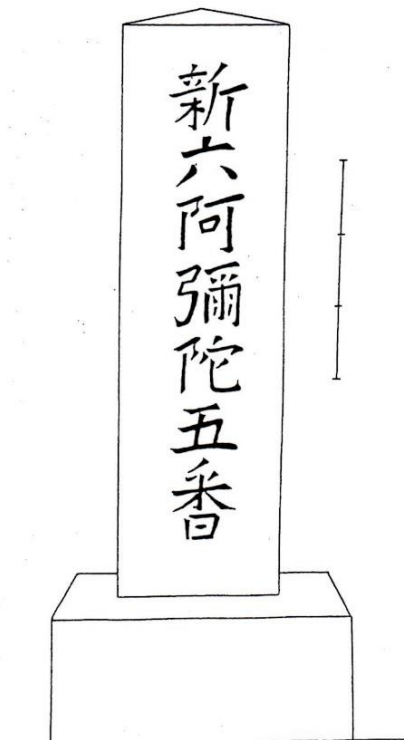 新六阿彌陀五番